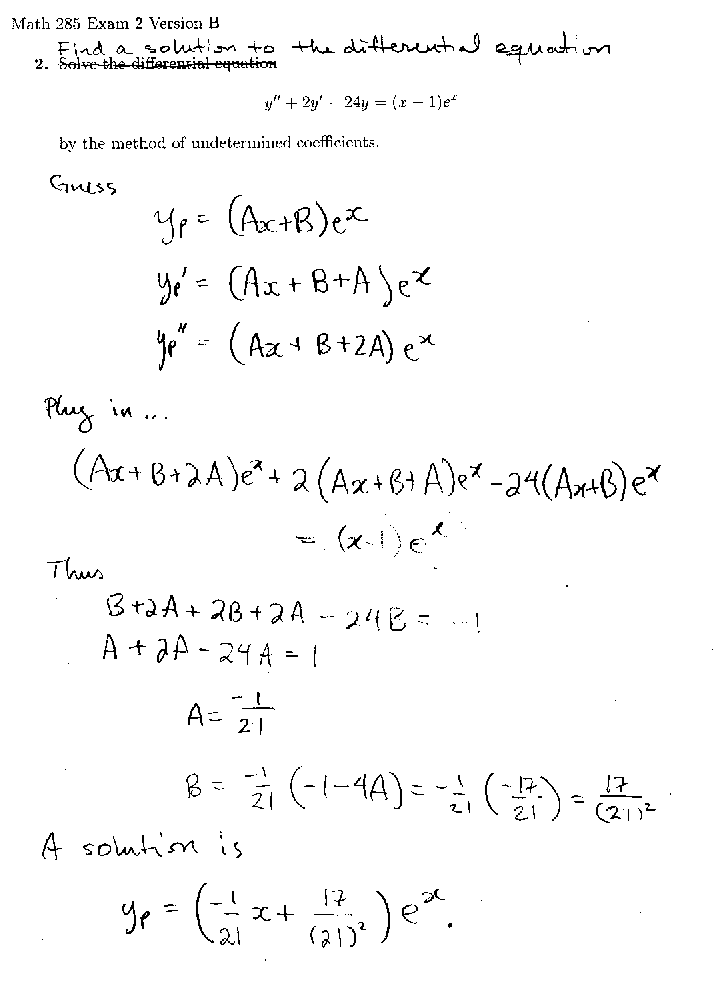 Math 285 Exam 2 Version B
Find a solution to the differential equation
2. Solve the differential equation
y″ + 2y′ - 24y = (x − 1)eˣ
by the method of undetermined coefficients.
Guess
yₚ = (Ax+B)eˣ
yₚ′ = (Ax + B+A)eˣ
yₚ″ = (Ax + B+2A)eˣ
Plug in ...
(Ax+B+2A)eˣ + 2(Ax+B+A)eˣ - 24(Ax+B)eˣ
= (x-1)eˣ
Thus
B+2A + 2B+2A - 24B = -1
A + 2A - 24A = 1
A = -1/21
B = -1/21 (-1-4A) = -1/21 (-17/21) = 17/(21)²
A solution is
yₚ = (-1/21 x + 17/(21)²) eˣ.